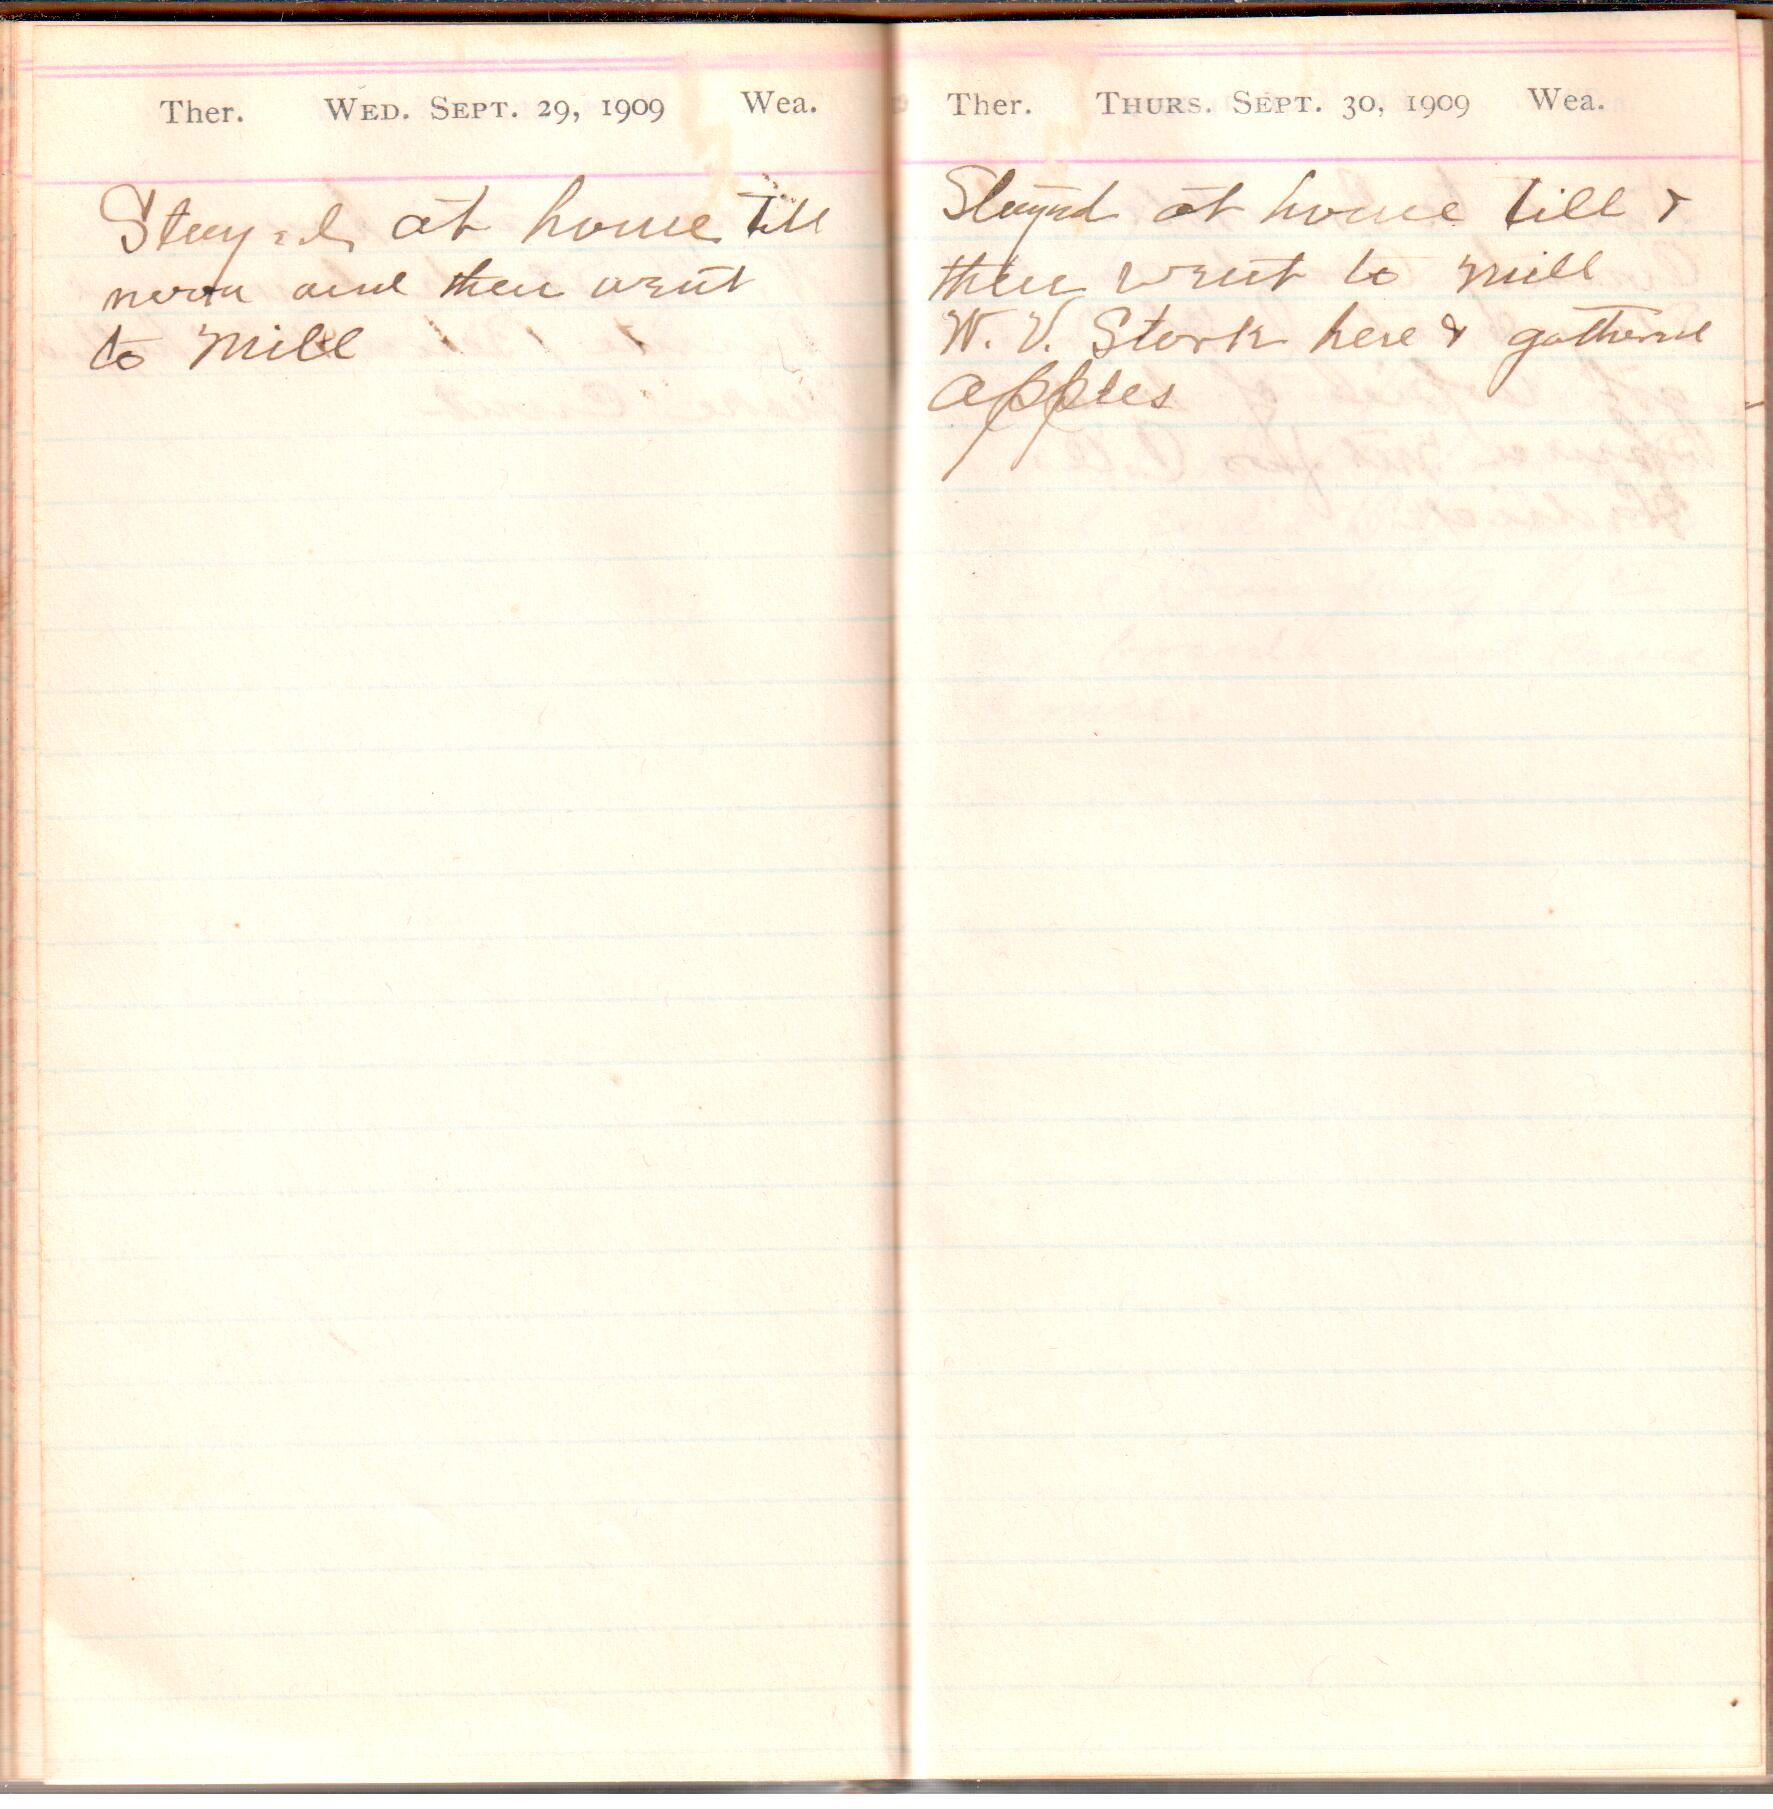 Ther. WED. SEPT. 29, 1909 Wea.
Stayed at home till
noon and then went
to mill
Ther. THURS. SEPT. 30, 1909 Wea.
Stayed at home till &
then went to mill
W. V. Stork here & gathered
apples